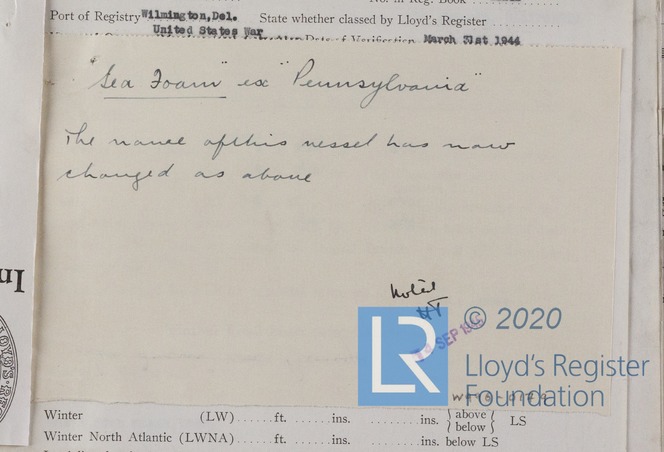 No. in Reg. Book
Port of Registry Wilmington, Del. State whether classed by Lloyd's Register
United States War Date of Verification March 31st 1944
"Sea Foam" ex "Pennsylvania"
The name of this vessel has now
changed as above
Noted
HT
SEP 19
LR
© 2020
Lloyd's Register
Foundation
Winter (LW) ft. ins. ins. { above below } LS
Winter North Atlantic (LWNA) ft. ins. ins. below LS